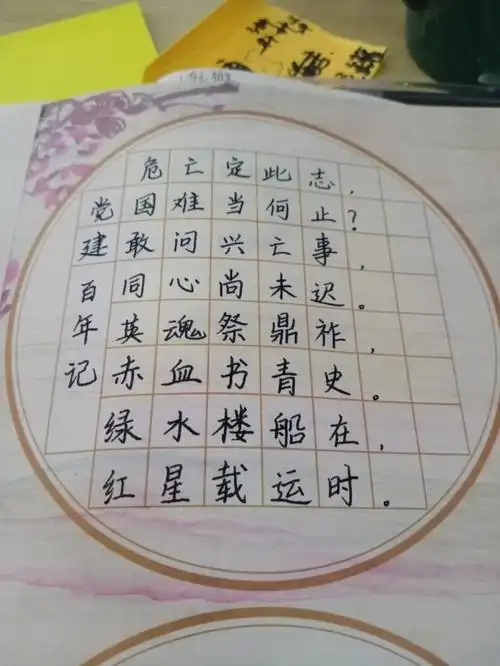 党建百年记
危亡定此志，
国难当何止？
敢问兴亡事，
同心尚未迟。
英魂祭鼎祚，
赤血书青史。
绿水楼船在，
红星载运时。